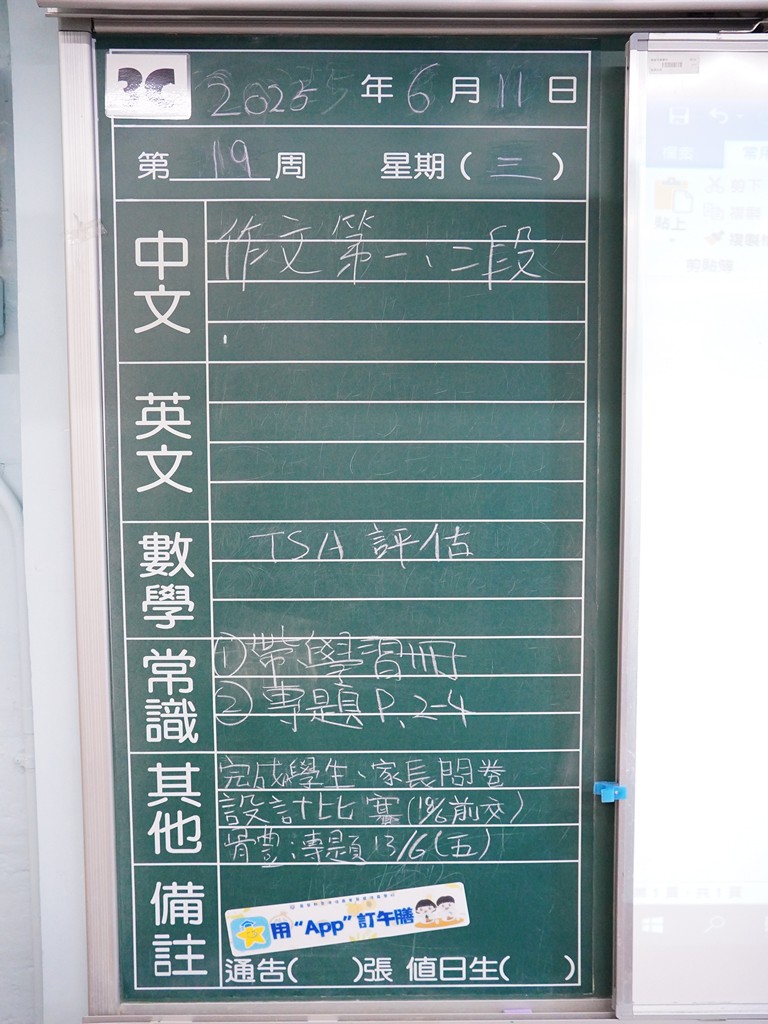 3C
2025年6月11日
第19周 星期(三)
中文
作文第一、二段
英文
數學
TSA 評估
常識
①帶學習冊
②專題P.2-4
其他
完成學生、家長問卷
設計比賽(19/6前交)
專題 13/6(五)
備註
用“App”訂午膳
通告( )張 值日生( )
貼上